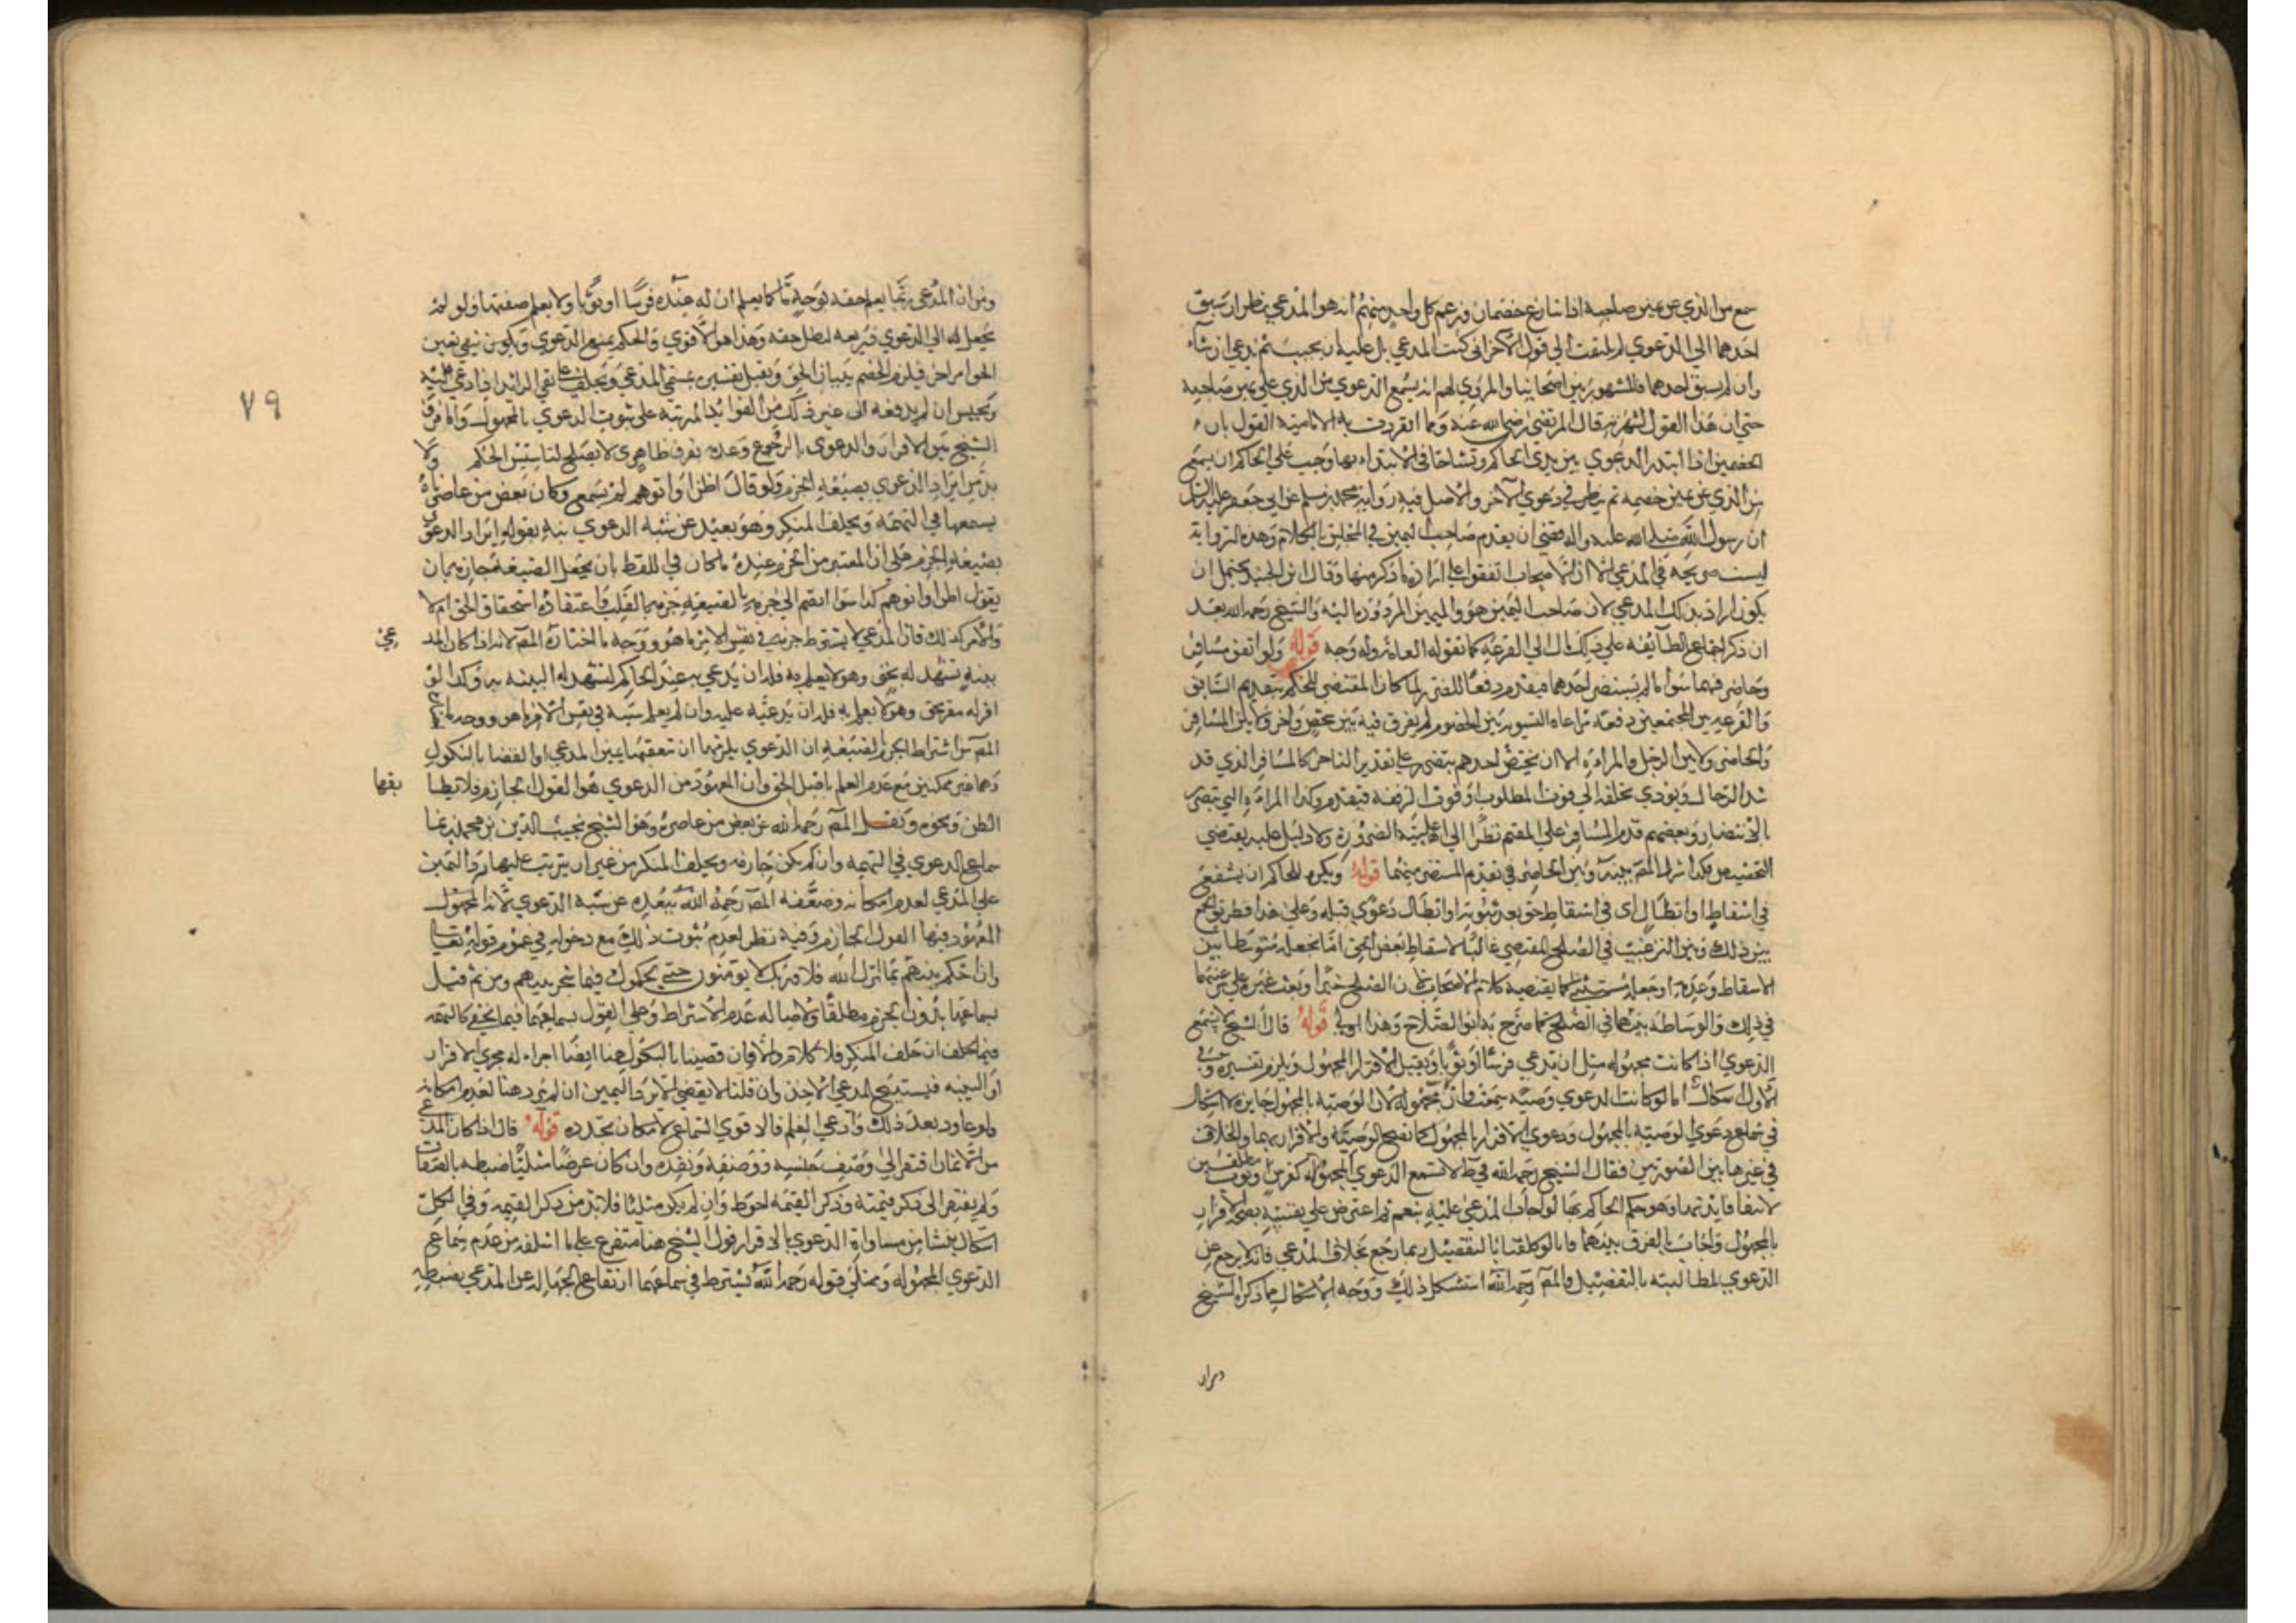 سمع من الذي عن يمين صاحبه اذا تنازع خصمان فزعم كل واحد منهم أنه هو المدعي نظر ان سبق
احدهما الي الدعوي لم يلتفت الي قول الآخر اني كنت المدعي بل عليه ان يجيب ثم يدعي ان شاء
وان لم يسبق احدهما فالمشهور بين اصحابنا والمروي لهم انه يسمع الدعوي من الذي علي يمين صاحبه
حتي ان هذا القول اشتهر قال المرتضي رضي الله عنه ومما انفردت به الامامية القول بان
الخصمين اذا ابتدرا الدعوي بين يدي الحاكم وتشاحا في الابتداء بها وجب علي الحاكم ان يسمع
من الذي عن يمين خصمه ثم ينظر في دعوي الآخر والاصل فيه رواية محمد بن مسلم عن ابي جعفر عليه السلام
ان رسول الله صلي الله عليه واله قضي ان يقدم صاحب اليمين في المجلس بالكلام وهذه الرواية
ليست صريحة في المدعي الا ان الاصحاب اتفقوا علي ارادة ما ذكر منها وقال ابن الجنيد يحتمل ان
يكون اراد بذلك المدعي لان صاحب اليمين هو واليمين المردودة اليه والشيخ رحمه الله بعد
ان ذكر اجماع الطائفة علي ذلك مال الي القرعة كما تقوله العامة وله وجه قوله ولو اتفق مسافر
وحاضر فهما سوا ما لم يستضر احدهما فيقدم دفعا للضرر لما كان المقتضي للحكم بتقديم السابق
والقرعة بين المجتمعين دفعة مراعاة التسوية بين الخصوم لم يفرق فيه بين شخص وآخر ولا بين المسافر
والحاضر ولا بين الرجل والمرأة الا ان يختص احدهم بتضرر علي تقدير التاخر كالمسافر الذي قد
شد الرحال ويؤدي تخلفه الي فوت المطلوب او فوت الرفقة فيقدم وكذا المرأة التي تتضرر
بالانتظار وبعضهم قدم المسافر علي المقيم نظرا الي اغلبية الضرورة ولا دليل عليه يقتضي
التخصيص فكذا شرك المصـ بينه وبين الحاضر في تقديم المستضر منهما قوله ويكره للحاكم ان يشفع
في اسقاط او ابطال اي في اسقاط حق بعد ثبوته او ابطال دعوي قبله وعلي هذا فطريق الجمع
بين ذلك وبين الترغيب في الصلح المقتضي غالبا لاسقاط بعض الحق اما بجعله متوسطا بين
الاسقاط وعدمه او بجعله مستثني كما يقتضيه كلام الاصحاب لان الصلح خير او بعث غيره علي ترغيبهما
في ذلك والوساطة بينهما في الصلح كما صرح به ابو الصلاح وهذا اولي قوله قال الشيخ لا تسمع
الدعوي اذا كانت مجهولة مثل ان يدعي فرسا او ثوبا ويقبل الاقرار بالمجهول ويلزم تفسيره وفي
الاول اشكال اما لو كانت الدعوي وصية سمعت وان مجهولة لان الوصية بالمجهول جايزة لا اشكال
في سماع دعوي الوصية بالمجهول ودعوي الاقرار بالمجهول كما تصح الوصية والاقرار بهما والخلاف
في غيرها بين الصورتين فقال الشيخ رحمه الله في ط لا تسمع الدعوي المجهولة كفرس وثوب مطلقين
لانتفا فايدتها وهو حكم الحاكم بها لو اجاب المدعي عليه بنعم ثم اعترض علي نفسه بصحة الاقرار
بالمجهول واجاب بالفرق بينهما فانا لو كلفناه بالتفصيل ربما رجع بخلاف المدعي فانه لا يرجع عن
الدعوي لمطالبته بالتفصيل والمصـ رحمه الله استشكل ذلك ووجه الاشكال مما ذكره الشيخ
ومن ان
٧٩
ومن ان المدعي ربما يعلم حقه بوجه ما كما يعلم ان له عنده فرسا او ثوبا ولا يعلم صفتها ولو لم
يجعل له الي الدعوي ذريعه لبطل حقه وهذا هو الاقوي والحكم بمنع الدعوي
الحق امر اخر فيلزم الخصم ببيان الحق ويقبل تفسيره بمسمي المدعي ويحلف علي نفي الزائد ان ادعي عليه
ويحبس ان لم يدفعه الي غير ذلك من الفوائد المرتبة علي ثبوت الدعوي بالمجهول واما فرق
الشيخ بين الاقرار والدعوي بالرجوع وعدمه بفرق ظاهري لا يصلح لتاسيس الحكم ولا
بد من ايراد الدعوي بصيغة الجزم فلو قال اظن او اتوهم لم تسمع وكان بعض من عاصرناه
يسمعها في التهمة ويحلف المنكر وهو بعيد عن شبه الدعوي نبه بقوله ايراد الدعوي
بصيغة الجزم علي ان المعتبر من الجزم عنده ما كان في اللفظ بان يجعل الصيغة جازمة دون ان
يقول اظن او اتوهم كذا سوا انضم الي جزمه بالصيغة جزمه بالقلب واعتقاده استحقاق الحق ام لا
والامر كذلك فان المدعي لا يشترط جزمه في نفس الامر ما هو ووجه ما اختاره المصـ لانه اذا كان للمد
عي
بينة تشهد له بحق وهو لا يعلم به فله ان يدعي به عند الحاكم لتشهد له البينة به وكذا لو
اقر له مقر بحق وهو لا يعلم به فله ان يدعيه عليه وان لم يعلم سببه في نفس الامر ما هو ووجه ما
المصـ من اشتراط الجزم بالصيغة ان الدعوي يلزمها ان تتعقبها يمين المدعي او القضا بالنكول
وهما غير ممكنين مع عدم العلم باصل الحق وان المعهود من الدعوي هو القول الجازم فلا يطا
بقها
الظن ونحوه ونقل المصـ رحمه الله عن بعض من عاصره وهو الشيخ نجيب الدين بن محمد بن نما
سماع الدعوي في التهمة وان لم يكن جازمه ويحلف المنكر من غير ان يترتب عليها رد اليمين
علي المدعي لعدم امكانه وضعفه المصـ رحمه الله ببعده عن شبه الدعوي لان المجهول
المعهود منها القول الجازم وفيه نظر لعدم ثبوت ذلك مع دخوله في عموم قوله تعالي
وان احكم بينهم بما انزل الله فلا وربك لا يؤمنون حتي يحكموك فيما شجر بينهم ومن ثم قيل
بسماعها بدون الجزم مطلقا ولاصالة عدم الاشتراط وعلي القول بسماعها فيما يخفي كالتهمة
فيها يحلف ان حلف المنكر فلا كلام والا فان قضينا بالنكول هنا ايضا اجراء له مجري الاقرار
او البينة فيستبيح المدعي الاخذ وان قلنا لا يقضي الا برد اليمين ان لم ترد هنا لعدم امكانه
ولو عاود بعد ذلك وادعي العلم فالاقوي السماع لامكان تجدده قوله قال اذا كان المدعي
من الاثمان افتقر الي وصف جنسه ووصفه ونقده وان كان عرضا مثليا ضبطه بالصفات
ولم يفتقر الي ذكر قيمته وذكر القيمة احوط وان لم يكن مثليا فلا بد من ذكر القيمة وفي الكل
اشكال ينشا من مساواة الدعوي بالاقرار قول الشيخ هنا متفرع علي ما اسلفه من عدم سماع
الدعوي المجهولة ومعني قوله رحمه الله يشترط في سماعها ارتفاع الجهالة عن المدعي بضبطه